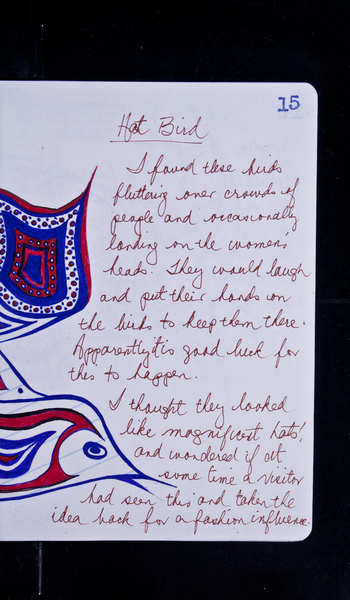 15
Hat Bird
I found these birds
fluttering over crowds of
people and occasionally
landing on the women's
heads. They would laugh
and put their hands on
the birds to keep them there.
Apparently it is good luck for
this to happen.
I thought they looked
like magnificent hats!
and wondered if at
some time a visitor
had seen this and taken the
idea back for a fashion influence.